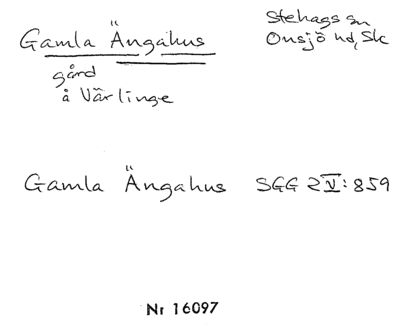 Gamla Ängahus
Stehags sn
Onsjö hd, Sk
gård
å Värlinge
Gamla Ängahus SGG 2 IV: 859
Nr 16097